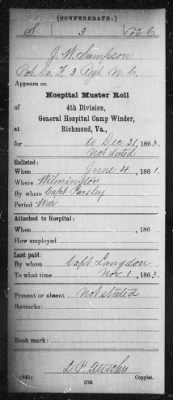 (CONFEDERATE.)
S 3 N.C.
J. W. Sampson
Co. F, 3 Regt. N. C.
Appears on
Hospital Muster Roll
of
4th Division,
General Hospital Camp Winder,
Richmond, Va.,
for to Dec 31, 1863
Not dated
Enlisted:
When June 4, 1861
Where Wilmington
By whom Capt Parsley
Period War
Attached to Hospital:
When , 186
How employed
Last paid:
By whom Capt Langdon
To what time Nov 1, 1863
Present or absent Not stated
Remarks:
Book mark:
Copyist.